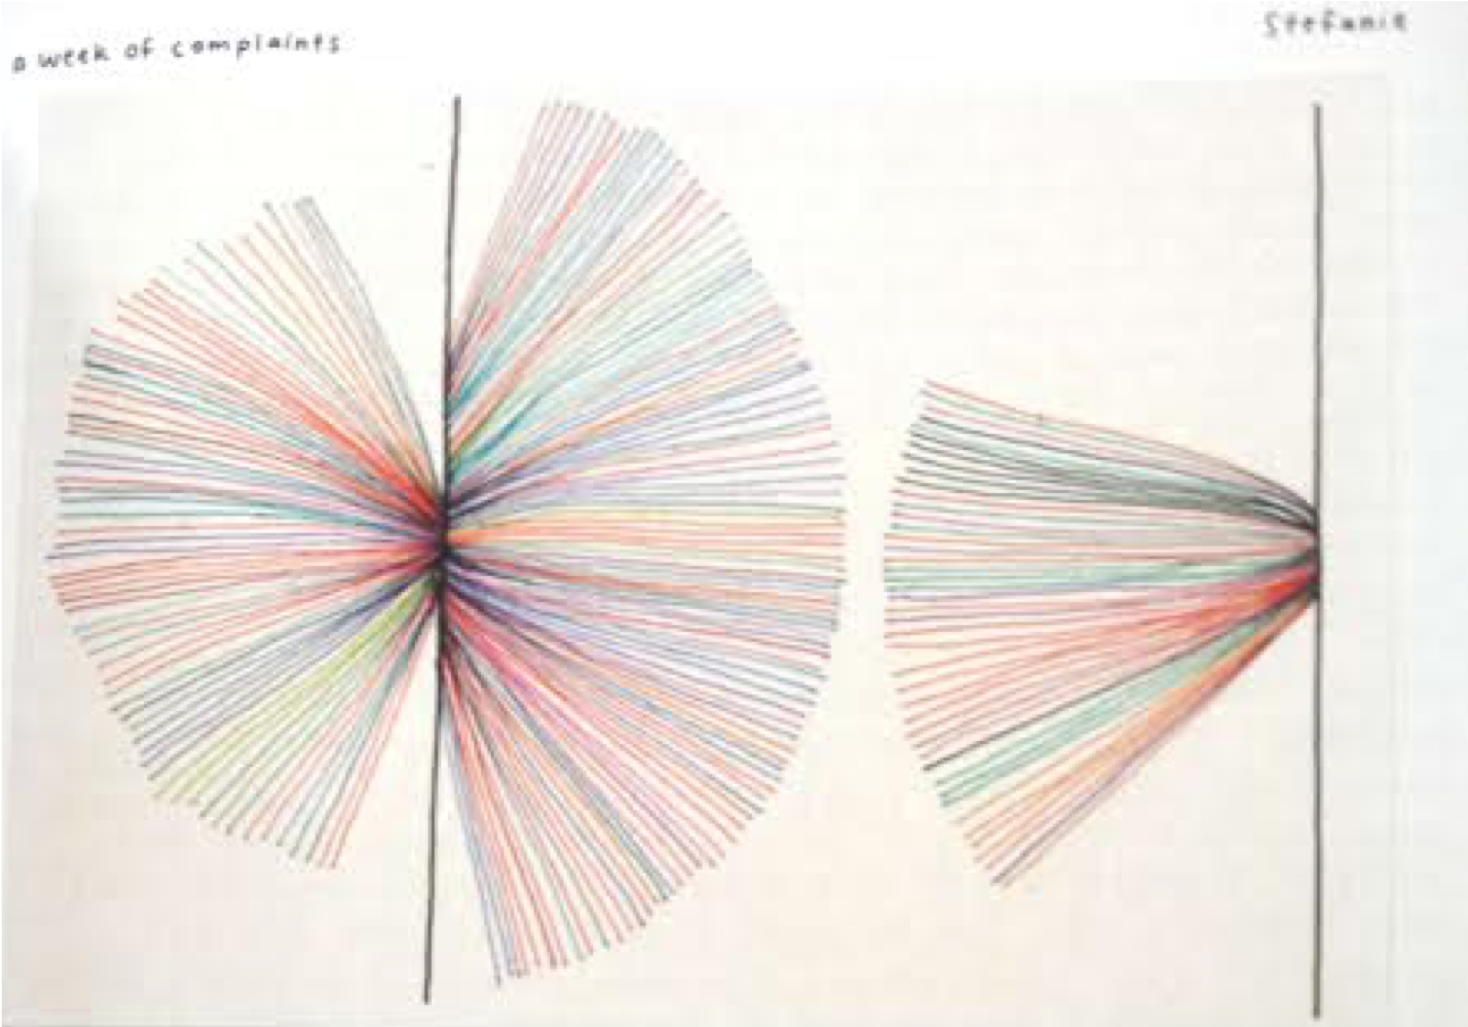 a week of complaints
Stefanie